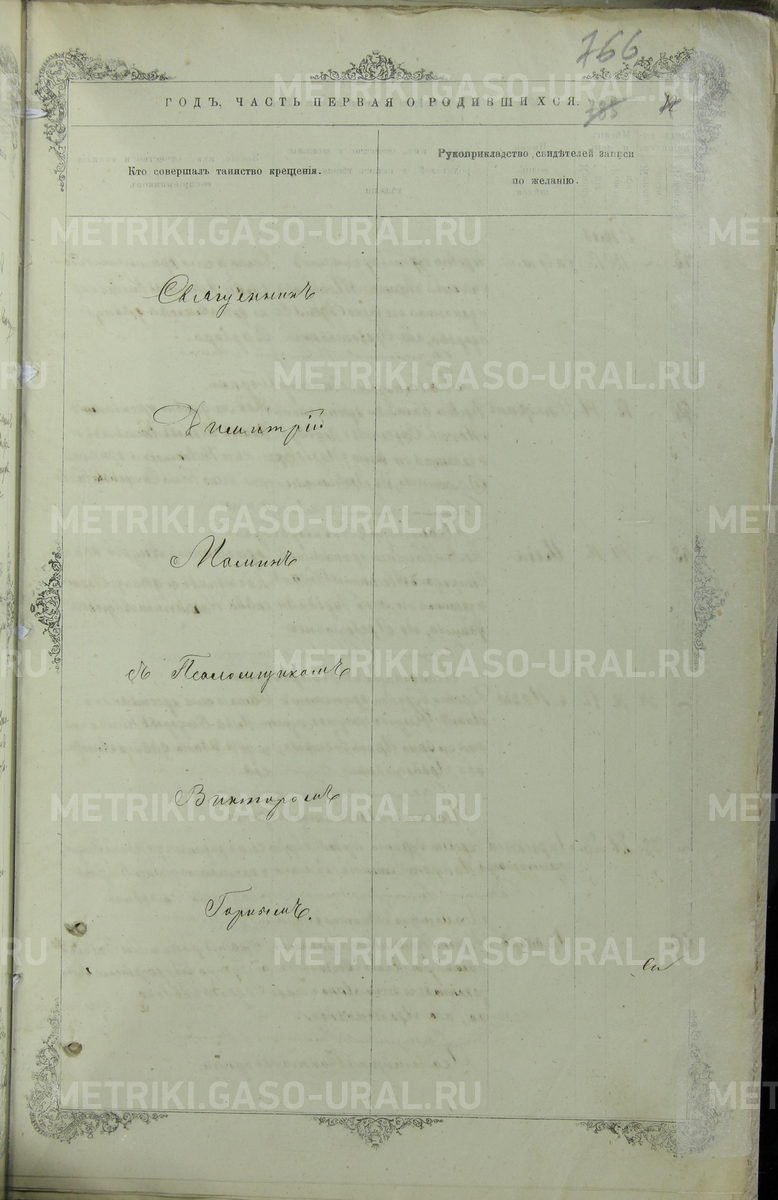 766
ГОДЪ, ЧАСТЬ ПЕРВАЯ О РОДИВШИХСЯ.
Кто совершалъ таинство крещенія.
Рукоприкладство свидѣтелей записи
по желанію.
Священникъ
Димитрій
Маминъ
съ Псаломщикомъ
Викторомъ
Горнымъ.
METRIKI.GASO-URAL.RU